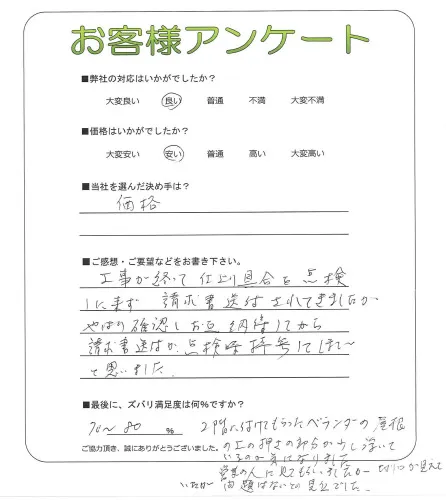 お客様アンケート
■弊社の対応はいかがでしたか？
大変良い 良い 普通 不満 大変不満
■価格はいかがでしたか？
大変安い 安い 普通 高い 大変高い
■当社を選んだ決め手は？
価格
■ご感想・ご要望などをお書き下さい。
工事が終って 仕上り具合を点検
に来ず 請求書送付されてきましたが
やはり確認しお互納得してから
請求書送付か 点検時持参してほしい
と思いました
■最後に、ズバリ満足度は何%ですか？
70～80 %
2階に付けてもらったベランダーの屋根
の上の押さの部分が少し浮いて
いるのが気になりました
ご協力頂き、誠にありがとうございました。
営業の人に見てもらいましたが
問題はないとの見立でした。